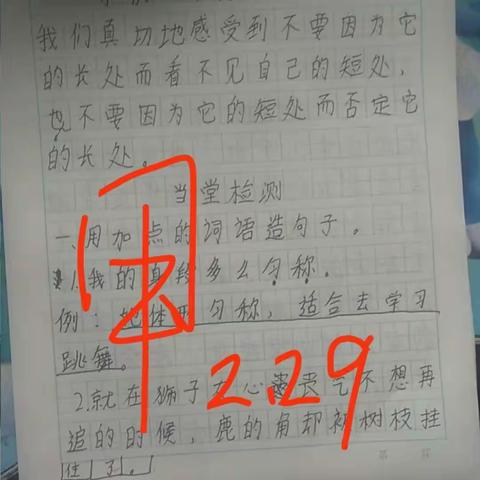 我们真切地感受到不要因为它
的长处而看不见自己的短处,
也不要因为它的短处而否定它
的长处。
当堂检测
一、用加点的词语造句子。
1.我的身段多么匀称.
例:她体形匀称,适合去学习
跳舞。
2.就在狮子灰心丧气不想再
追的时候,鹿的角却被树枝挂
住了。
2.29